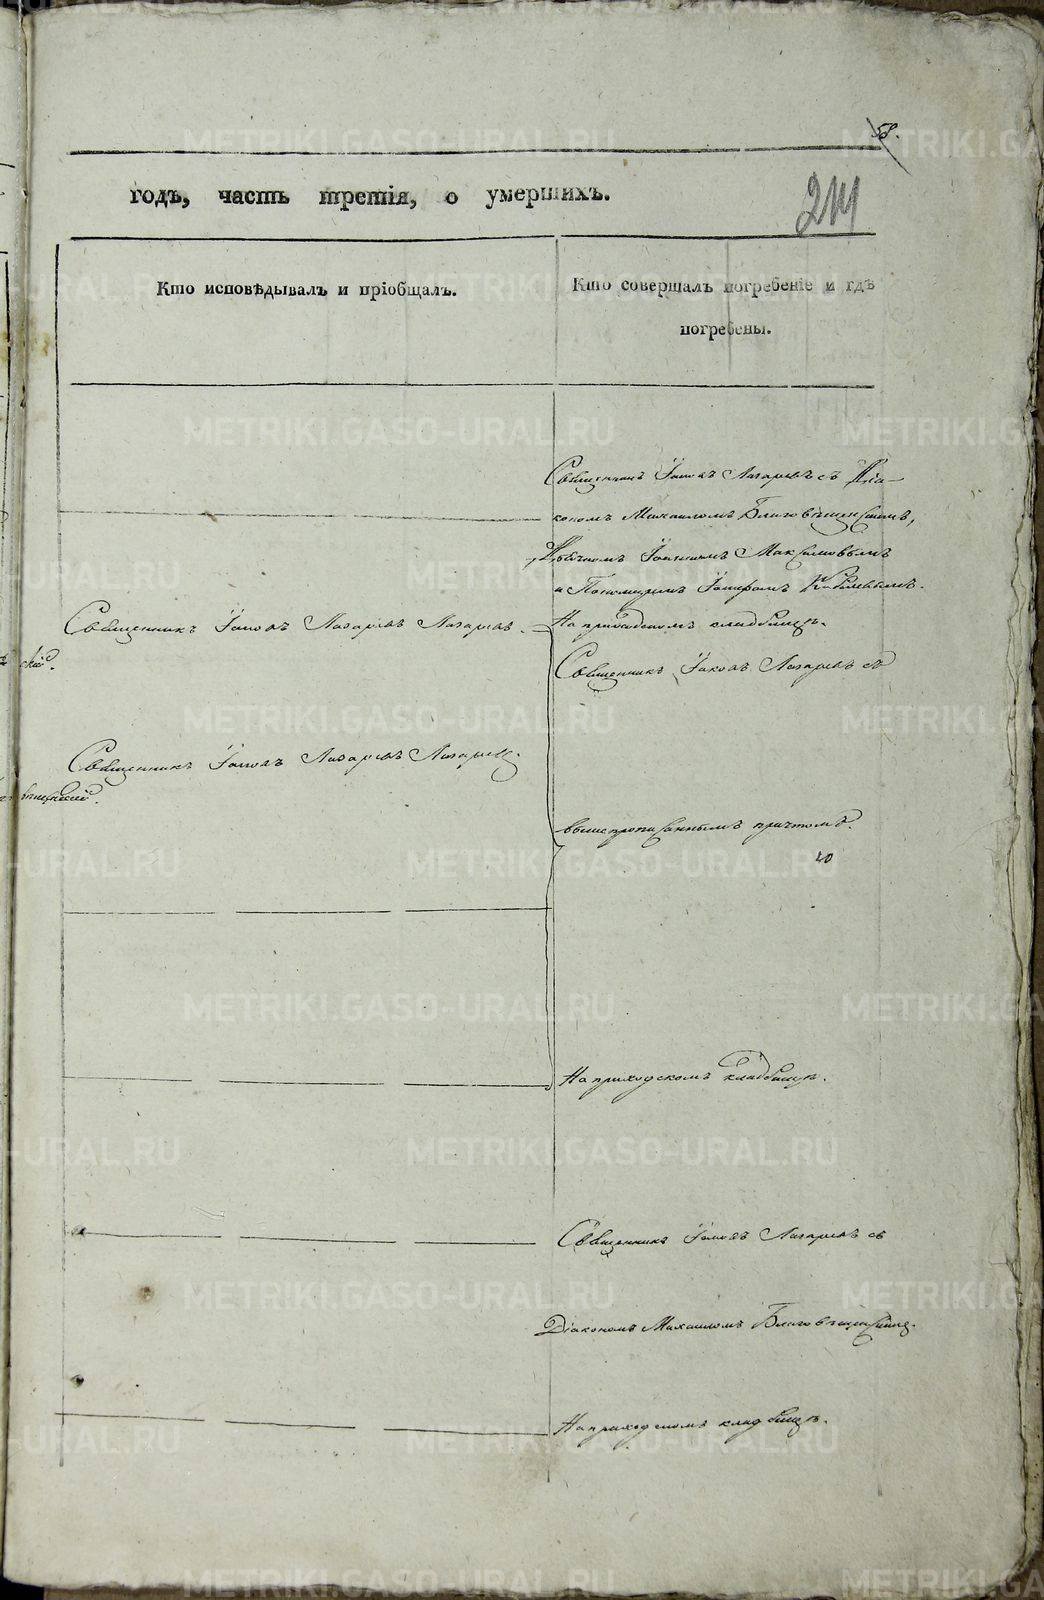 58.
годъ, часть третія, о умершихъ.
211
Кто исповѣдывалъ и пріобщалъ.
Кто совершалъ погребеніе и гдѣ
погребены.
Священникъ Іаковъ Лазаревъ съ Діа-
кономъ Михаиломъ Благовѣщенскимъ,
Дьячкомъ Іоанномъ Максимовымъ
и Пономаремъ
На приходскомъ кладбищѣ.
Священникъ Іаковъ Лазаревъ Лазаревъ.
Священникъ Іаковъ Лазаревъ съ
Священникъ Іаковъ Лазаревъ Лазаревъ.
вышепрописаннымъ причтомъ.
На приходскомъ кладбищѣ.
Священникъ Іаковъ Лазаревъ съ
Діакономъ Михаиломъ Благовѣщенскимъ.
На приходскомъ кладбищѣ.
METRIKI.GASO-URAL.RU